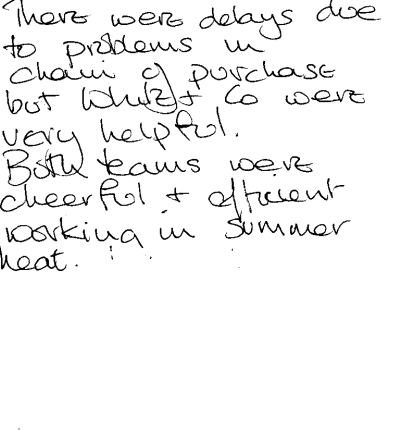 There were delays due
to problems in
chain of purchase
but White & Co were
very helpful.
Both teams were
cheerful + efficient
working in summer
heat.